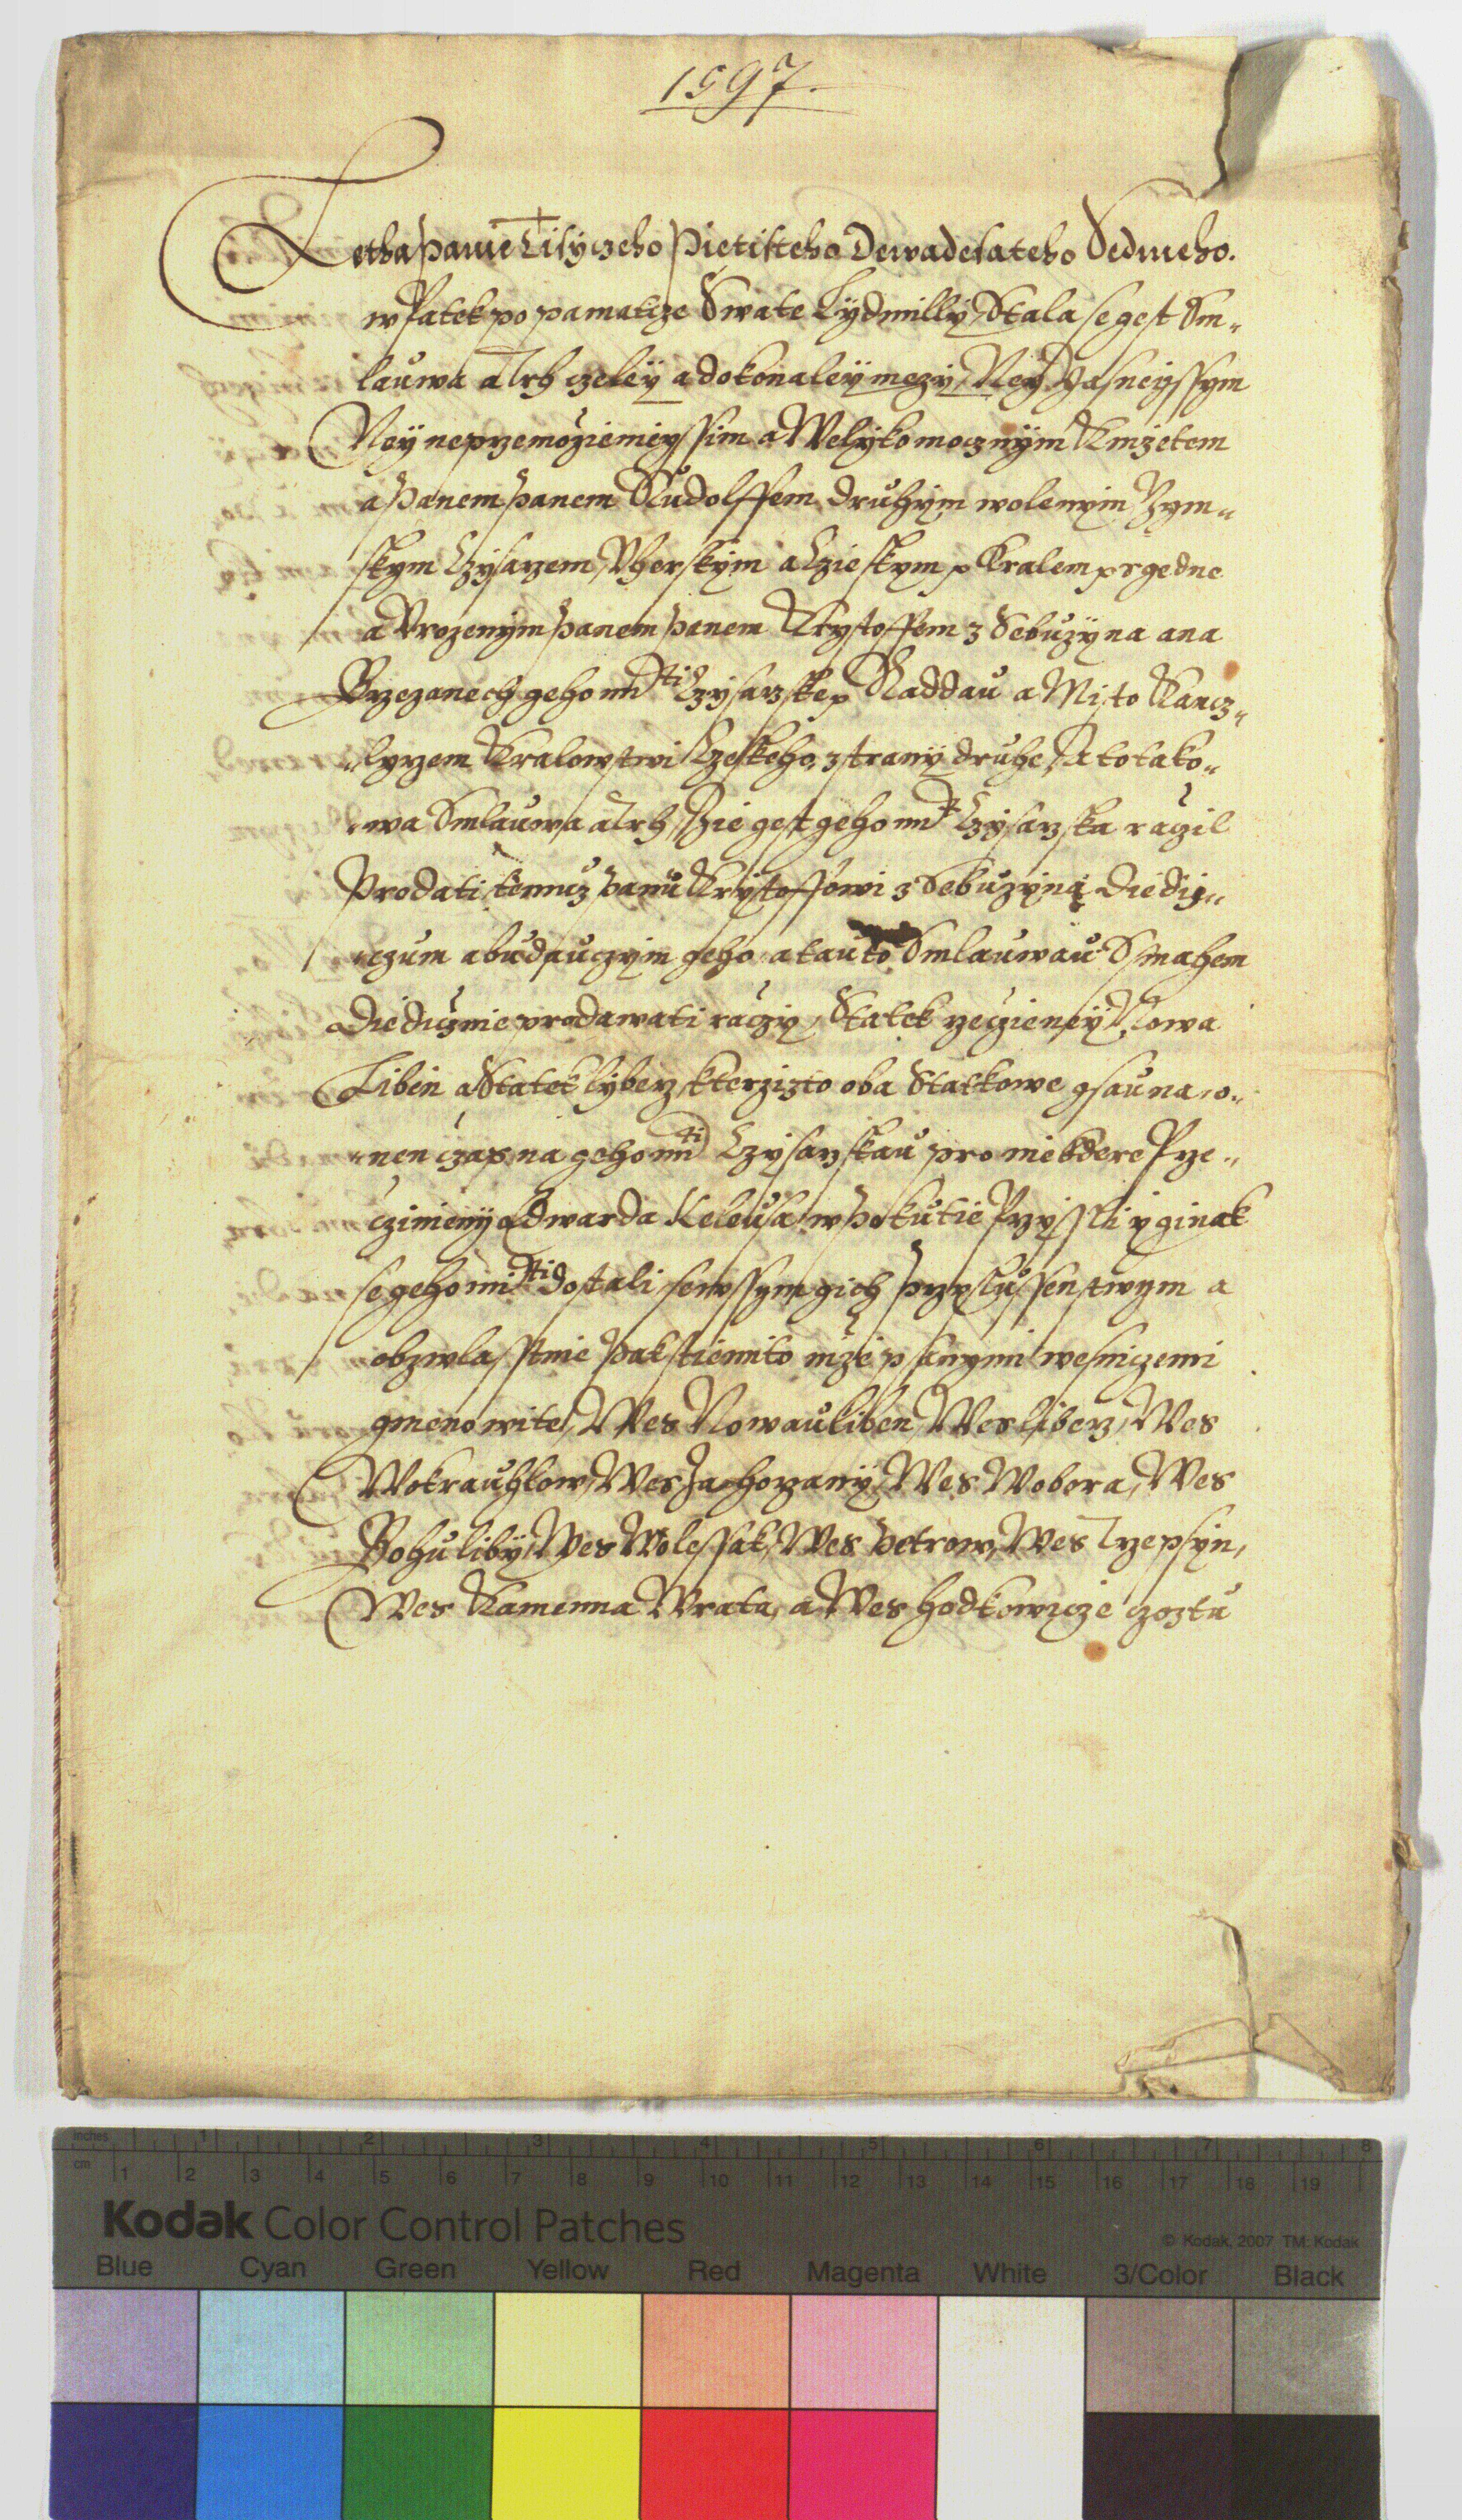 1597.
Letha Panie Tisyczeho Pietisteho Dewadesateho Sedmeho.
w Patek po pamatcze Swate Lydmilly, Stala se gest Sm„
lauwa a Trh czeleÿ a dokonaleÿ mezy, Neÿ Jasneyssym
Neÿ neprzemozieniegssim a Welykomocznÿm Knizetem
a Panem Panem Rudolffem druhÿm wolenym Rzym„
skym Czysarzem, Vherskÿm a Czieskym p Kralem p: z gedne
a Vrozenÿm Panem Panem Krystoffem z Sebuzÿna a na
Brzezanech geho mti Czysarzske p Raddau a Misto Kancz„
„lyrzem Kralowstwi Czeskeho, z stranÿ druhe, A to tako„
„wa Smlauwa a Trh, Zie gest geho mt Czysarzska raczil
Prodati temuz Panu Krystoffowi z Sebuzyna Diedi„
„czum a buducziym geho, a tauto Smlauwau Smahem
Diediczniе prodawati raczy, Statek rzeczieneÿ Nowa
Liben a Statek lyberz, kterzizto oba Statkowe gsau na ro„
„nen czap. na geho mti Czysarzskau pro niekdere Prze„
czinienÿ Edwarda Keleusa w Pokutie Przyssli y ginak
se geho mti dostali se wssym gich Przyslussenstwym a
obzwlasstnie Pak s tiemito nize psanymi wesniczemi
gmenowite, Wes Nowau liben, Wes liberz, Wes
Wokrauhlow, Wes Zachorzanÿ, Wes Wobora, Wes
Bohulibÿ, Wes Wolessak, Wes Petrow, Wes Trzepsyn,
Wes Kamenna Wrata, a Wes hodkowicze czoz tu
inches 1 2 3 4 5 6 7 8
cm 1 2 3 4 5 6 7 8 9 10 11 12 13 14 15 16 17 18 19
Kodak Color Control Patches
© Kodak, 2007 TM: Kodak
Blue Cyan Green Yellow Red Magenta White 3/Color Black